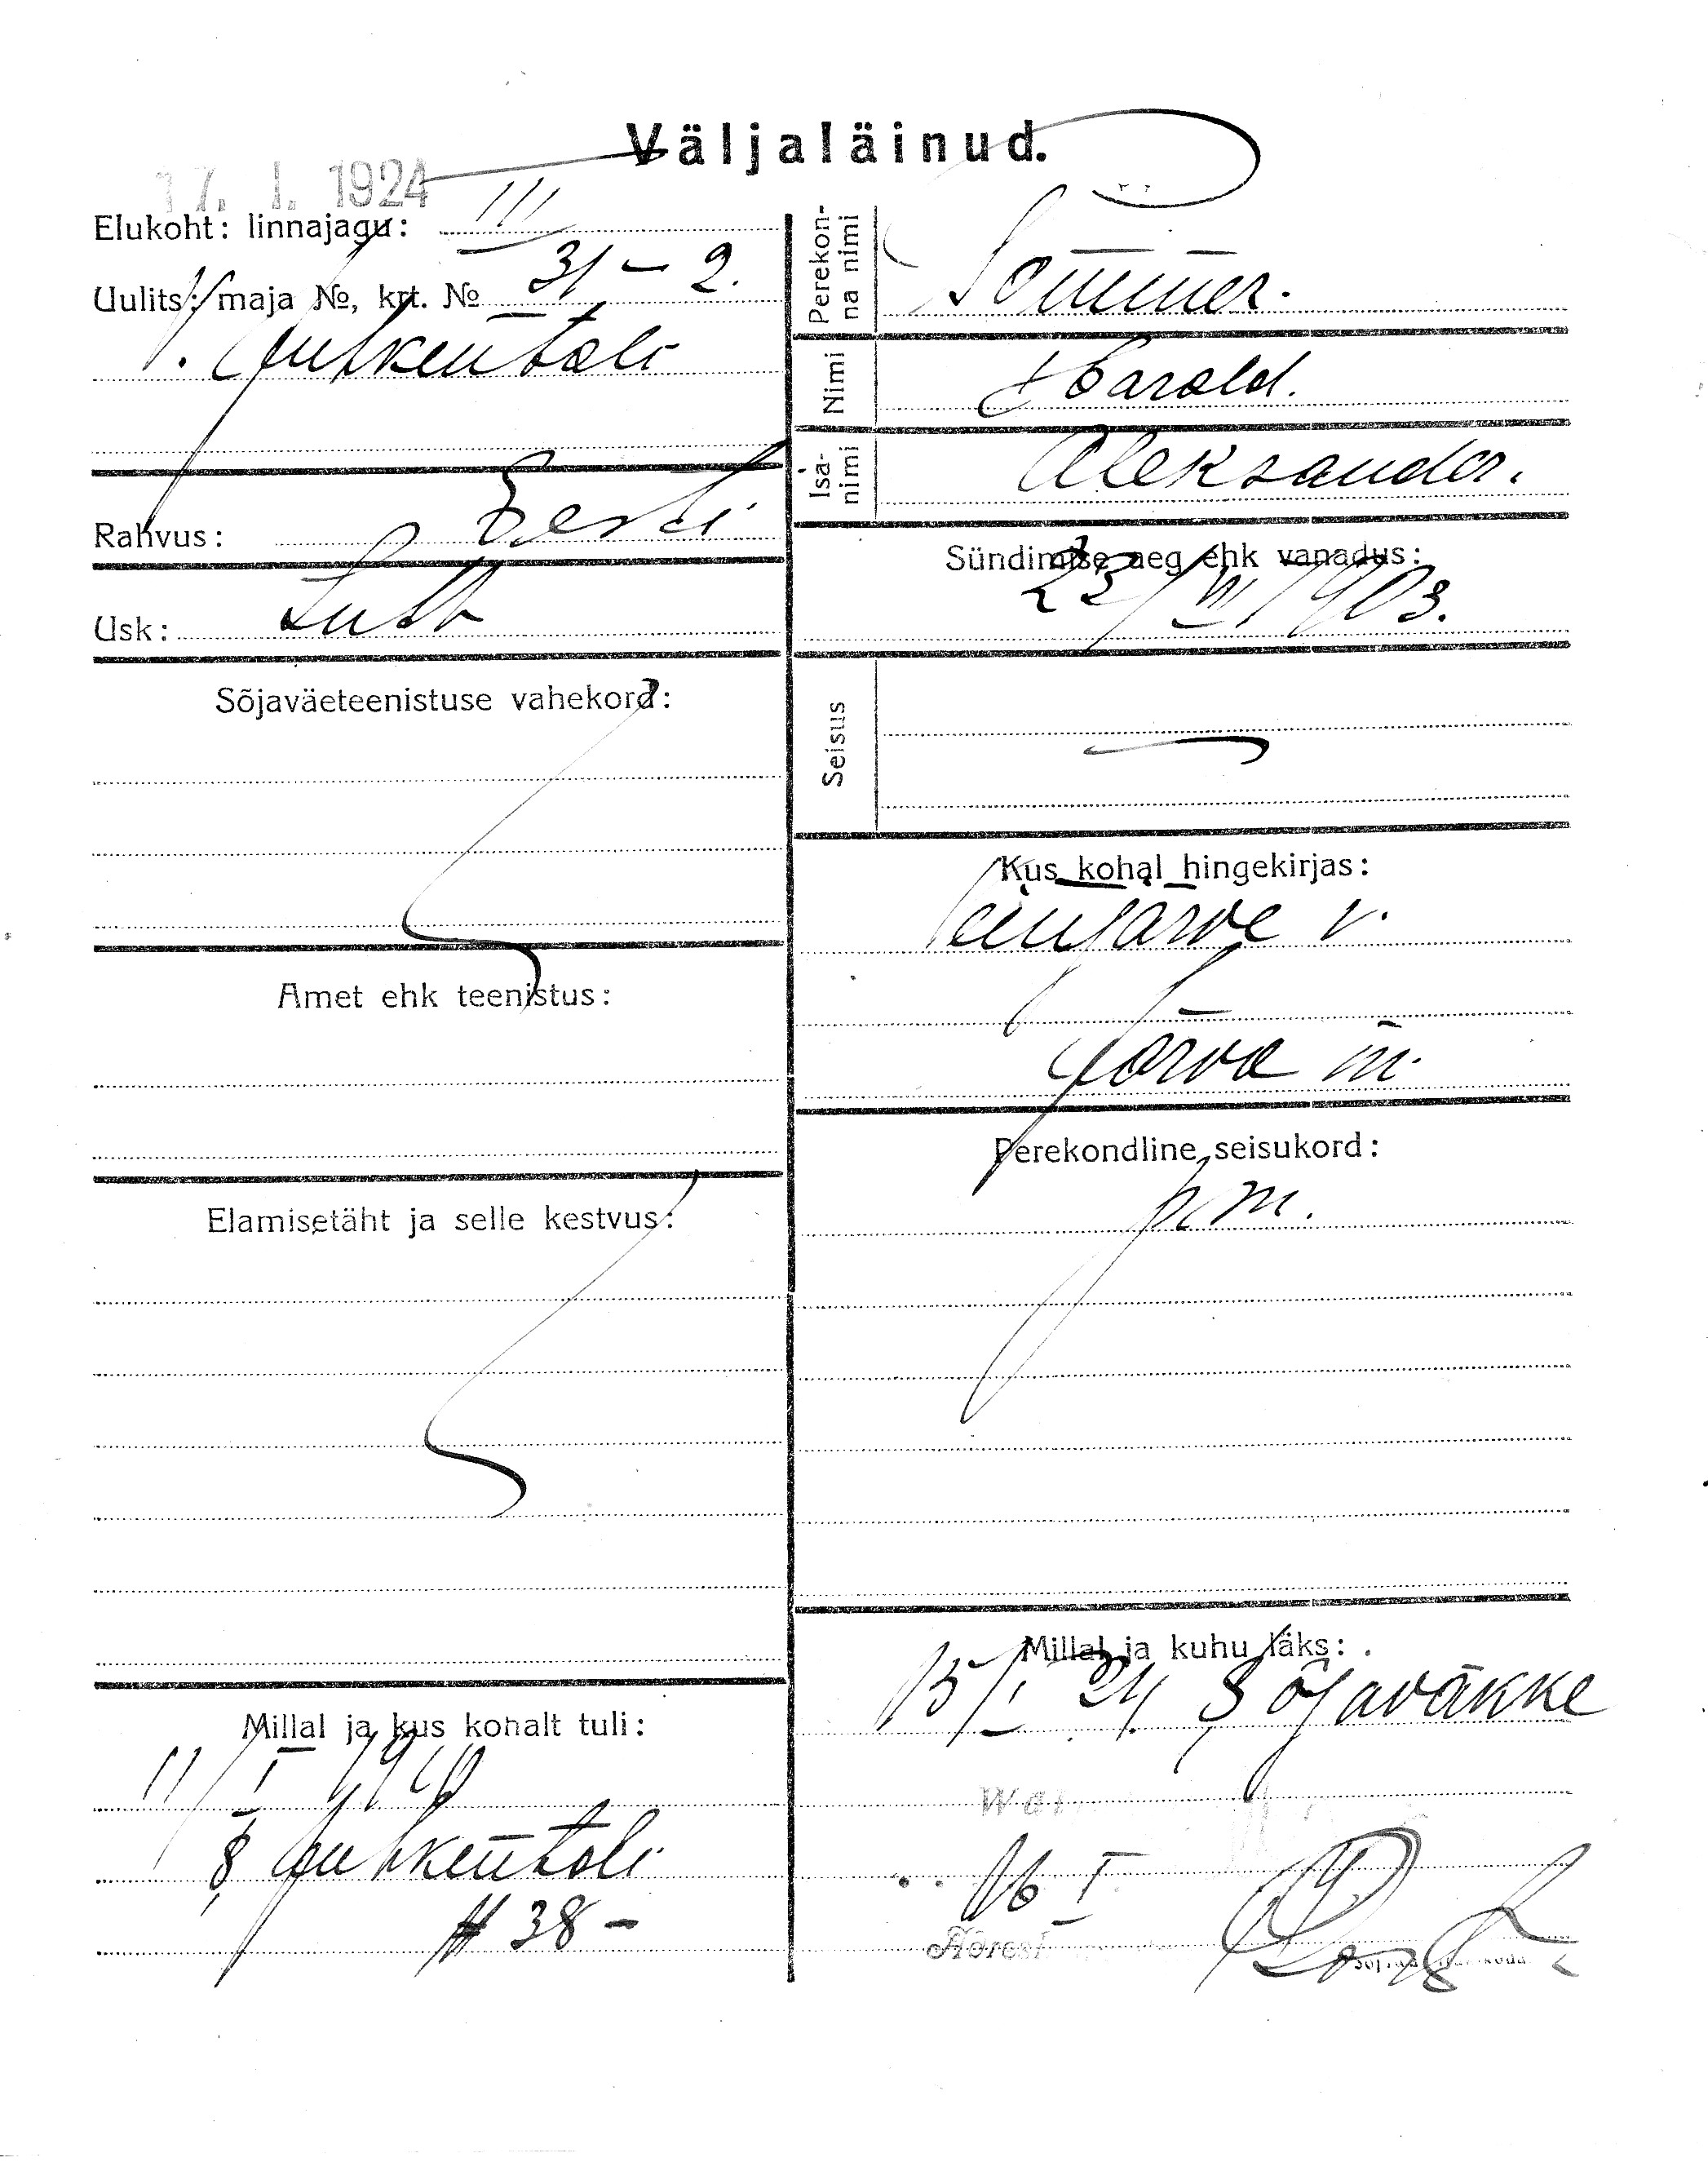 Väljaläinud.
17. I. 1924
Elukoht: linnajagu: III
Uulits, maja №, krt. № 31 – 2.
V. Juhkentali
Rahvus: Eesti
Usk: Luth
Sõjaväeteenistuse vahekord:
Amet ehk teenistus:
Elamisetäht ja selle kestvus:
Millal ja kus kohalt tuli:
11/I
S. Juhkentali
# 38 –
Perekon-
na nimi
Sommer.
Nimi Harald.
Isa-
nimi
Aleksander.
Sündimise aeg ehk vanadus:
23/VI 1903.
Seisus
Kus kohal hingekirjas:
Leinjärve v.
Järva m.
Perekondline seisukord:
p. m.
Millal ja kuhu läks:
15/I 24. Sõjaväkke
16 I